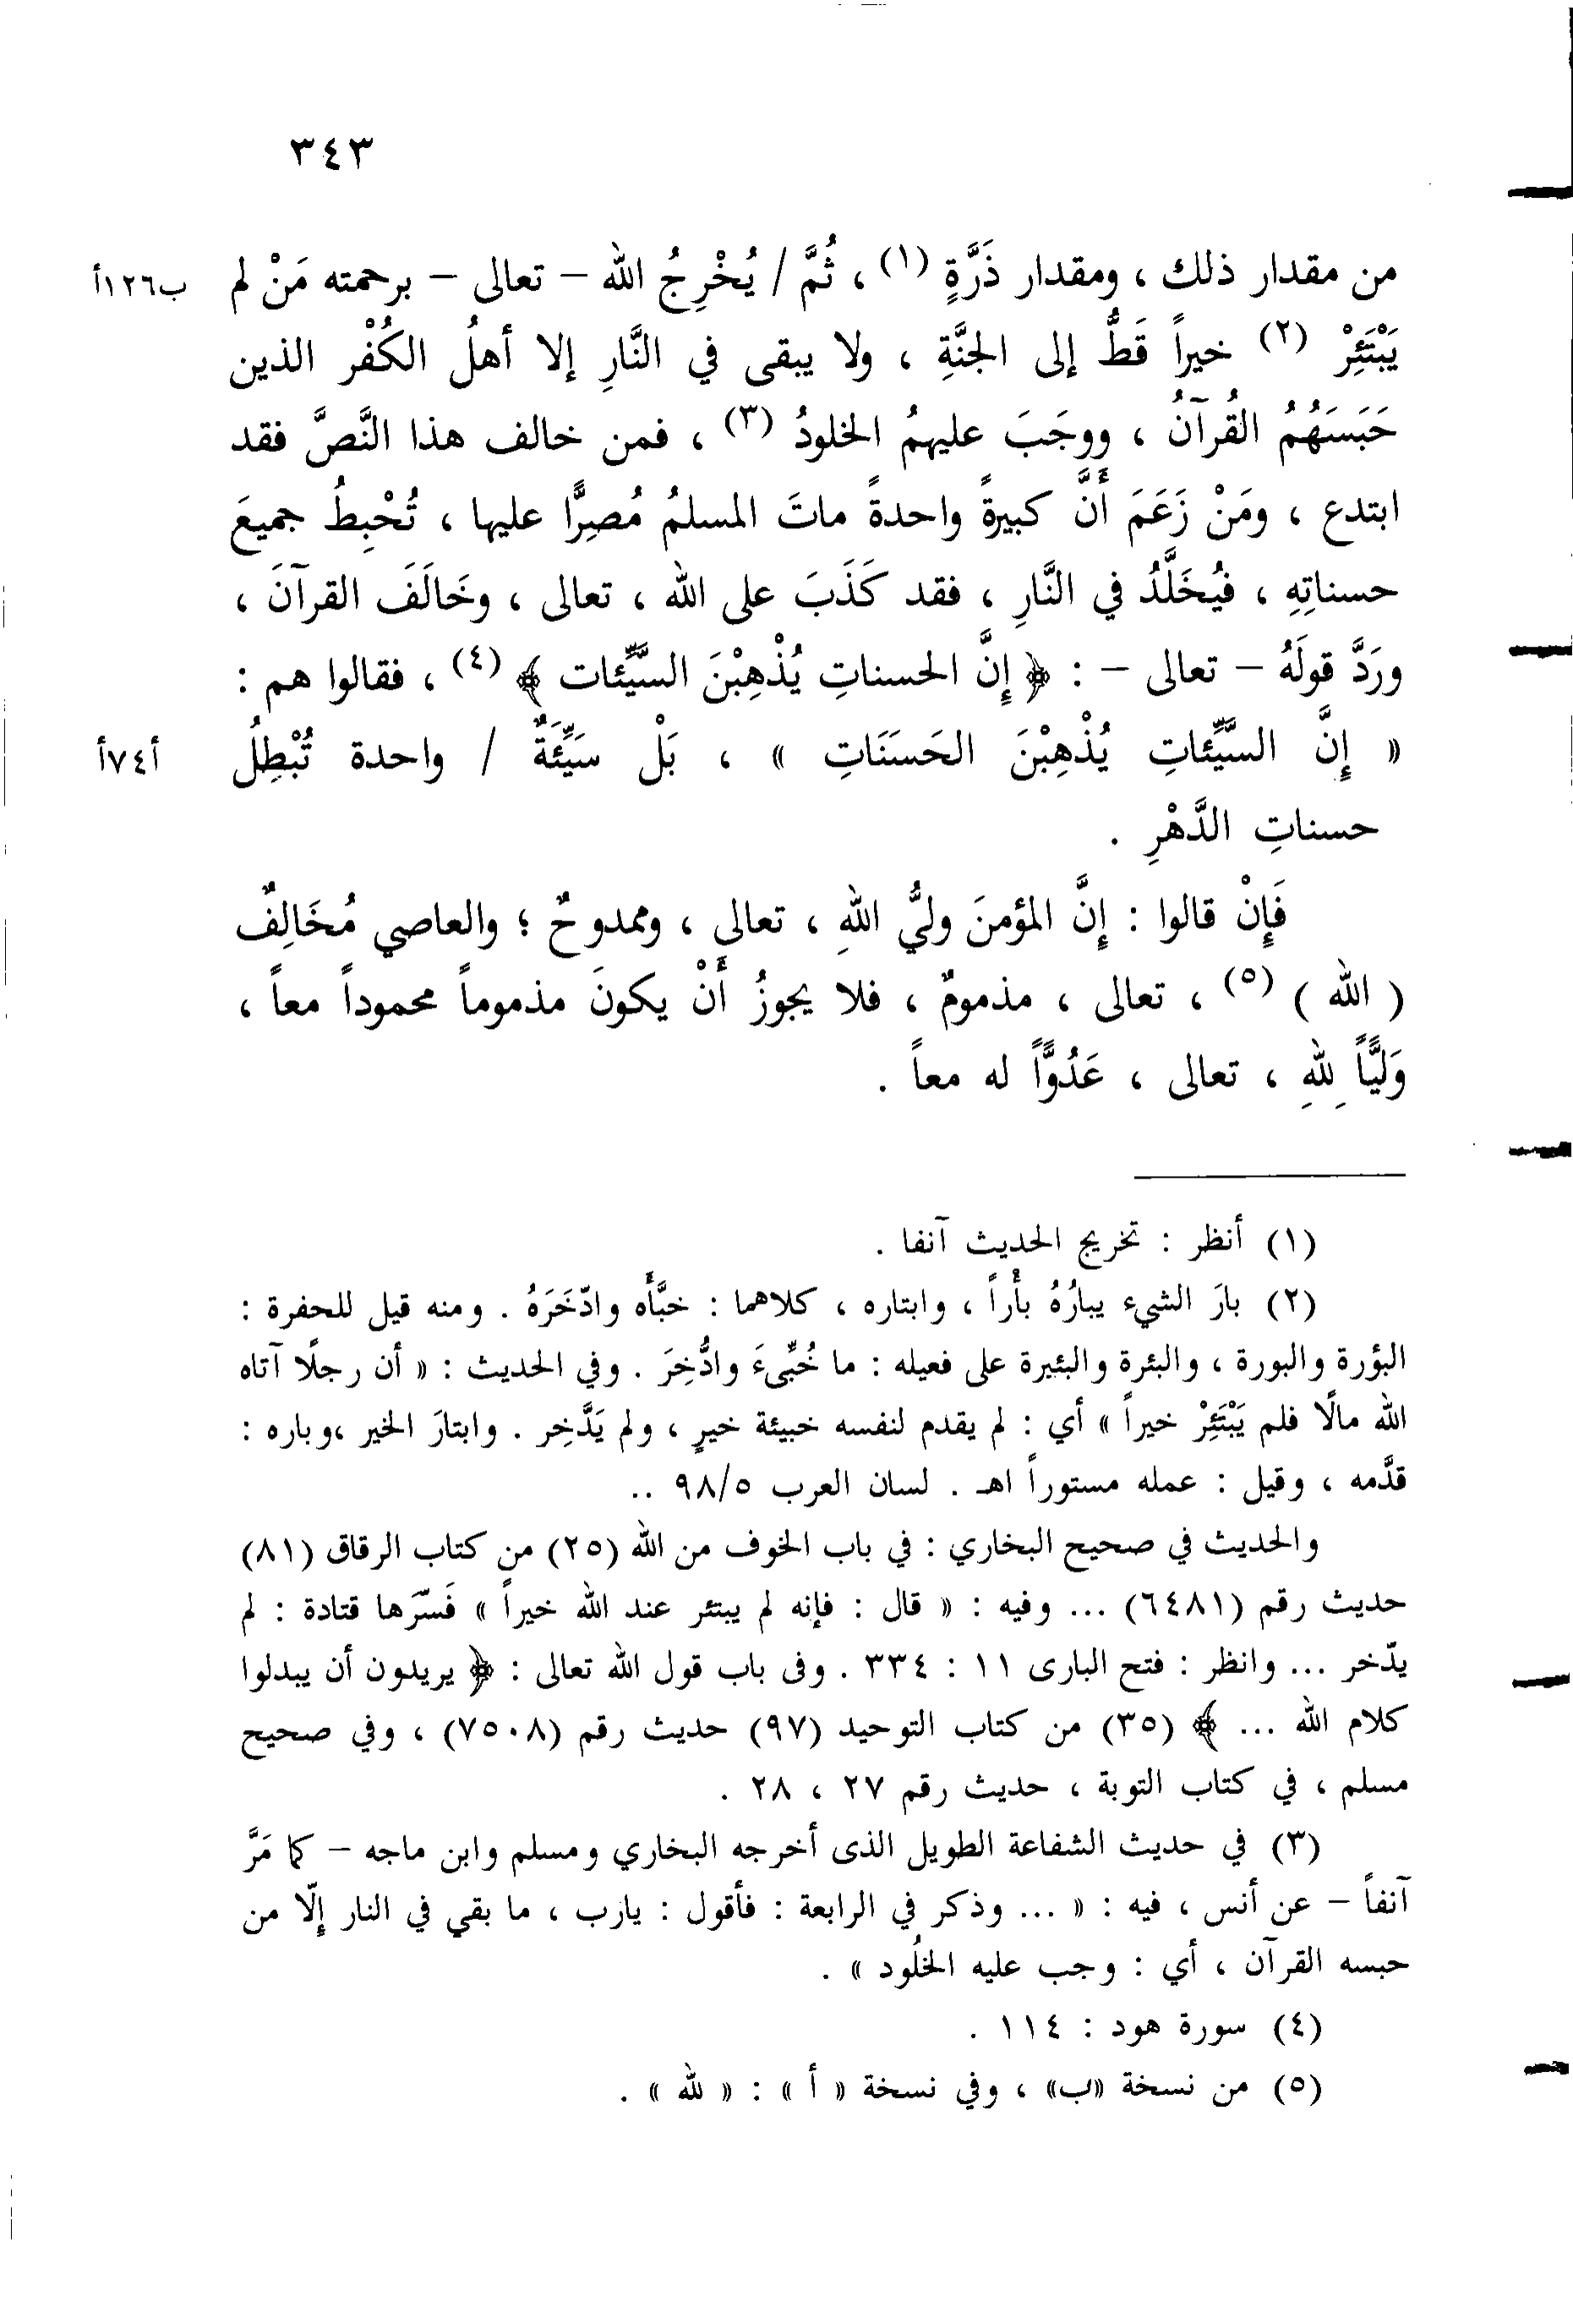 ٣٤٣
من مقدار ذلك ، ومقدار ذَرَّةٍ (١) ، ثُمَّ / يُخْرِجُ الله – تعالى – برحمته مَنْ لم ب١٢٦أ
يَبْتَئِرْ (٢) خيراً قَطُّ إلى الجنَّةِ ، ولا يبقى في النَّارِ إلا أهلُ الكُفْر الذين
حَبَسَهُمُ القُرآنُ ، ووجَبَ عليهمُ الخلودُ (٣) ، فمن خالف هذا النَّصَّ فقد
ابتدع ، ومَنْ زَعَمَ أَنَّ كبيرةً واحدةً ماتَ المسلمُ مُصِرًّا عليها ، تُحْبِطُ جميعَ
حسناتِهِ ، فيُخَلَّدُ في النَّارِ ، فقد كَذَبَ على الله ، تعالى ، وخَالَفَ القرآنَ ،
ورَدَّ قولَهُ – تعالى – : ﴿ إِنَّ الحسناتِ يُذْهِبْنَ السَّيِّئات ﴾ (٤) ، فقالوا هم :
« إِنَّ السَّيِّئاتِ يُذْهِبْنَ الحَسَنَاتِ » ، بَلْ سَيِّئَةٌ / واحدة تُبْطِلُ أ٧٤أ
حسناتِ الدَّهْرِ .
فَإِنْ قالوا : إِنَّ المؤمنَ وليُّ اللهِ ، تعالى ، وممدوحٌ ؛ والعاصي مُخَالِفٌ
( الله ) (٥) ، تعالى ، مذمومٌ ، فلا يجوزُ أَنْ يكونَ مذموماً محموداً معاً ،
وَلِيًّاً لِلهِ ، تعالى ، عَدُوًّاً له معاً .
(١) أنظر : تخريج الحديث آنفا .
(٢) بارَ الشيء يبارُهُ بأْراً ، وابتاره ، كلاهما : خبَّأَه وادّخَرَهُ . ومنه قيل للحفرة :
البؤرة والبورة ، والبئرة والبئيرة على فعيله : ما خُبِّىءَ وادُّخِرَ . وفي الحديث : « أن رجلًا آتاه
الله مالًا فلم يَبْتَئِرْ خيراً » أي : لم يقدم لنفسه خبيئة خيرٍ ، ولم يَدَّخِر . وابتارَ الخير ،وباره :
قدَّمه ، وقيل : عمله مستوراً اهـ . لسان العرب ٩٨/٥ ..
والحديث في صحيح البخاري : في باب الخوف من الله (٢٥) من كتاب الرقاق (٨١)
حديث رقم (٦٤٨١) ... وفيه : « قال : فإنه لم يبتئر عند الله خيراً » فَسّرها قتادة : لم
يدّخر ... وانظر : فتح البارى ١١ : ٣٣٤ . وفى باب قول الله تعالى : ﴿ يريدون أن يبدلوا
كلام الله ... ﴾ (٣٥) من كتاب التوحيد (٩٧) حديث رقم (٧٥٠٨) ، وفي صحيح
مسلم ، في كتاب التوبة ، حديث رقم ٢٧ ، ٢٨ .
(٣) في حديث الشفاعة الطويل الذى أخرجه البخاري ومسلم وابن ماجه – كما مَرَّ
آنفاً – عن أنس ، فيه : « ... وذكر في الرابعة : فأقول : يارب ، ما بقي في النار إِلّا من
حبسه القرآن ، أي : وجب عليه الخلُود » .
(٤) سورة هود : ١١٤ .
(٥) من نسخة «ب» ، وفي نسخة « أ » : « لله » .